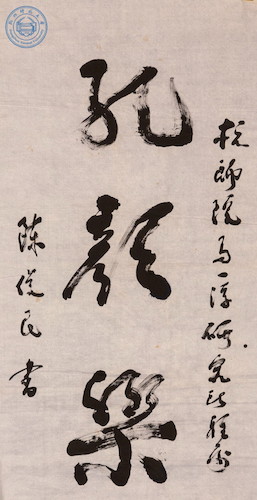 杭師院馬一浮研究所雅屬
孔顏樂
陳俊民書